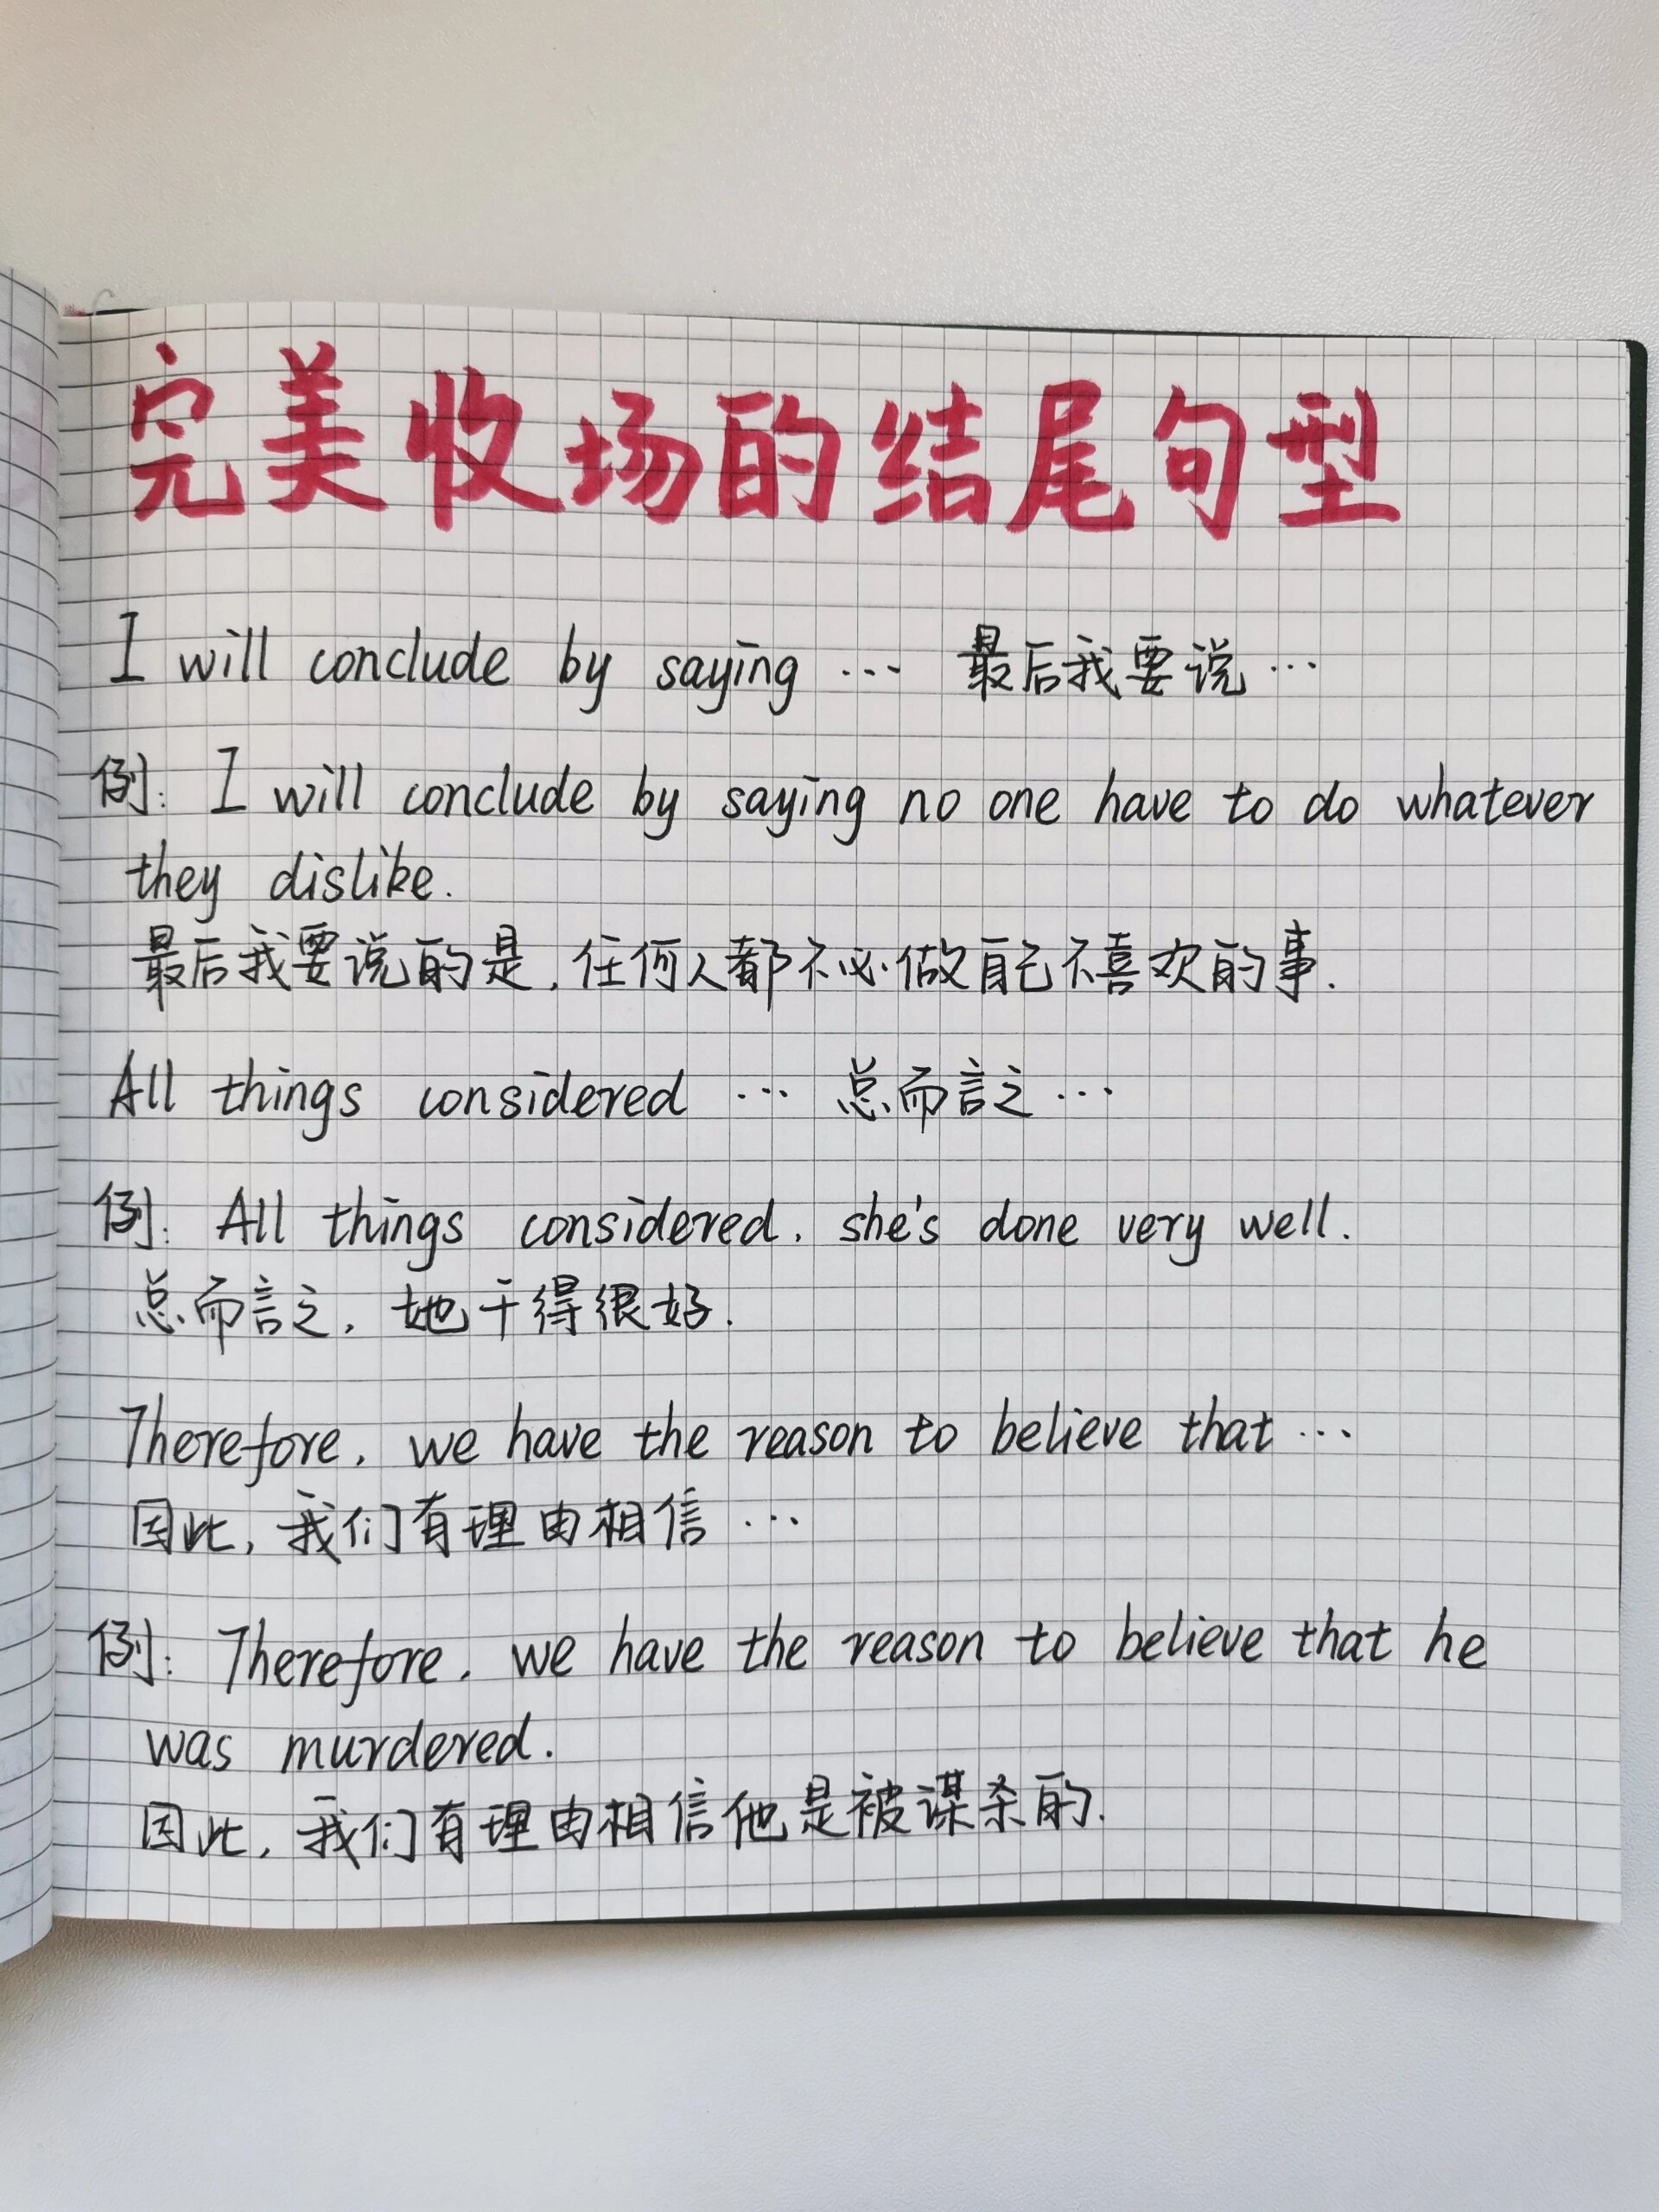 完美收场的结尾句型
I will conclude by saying … 最后我要说…
例: I will conclude by saying no one have to do whatever
they dislike.
最后我要说的是,任何人都不必做自己不喜欢的事.
All things considered … 总而言之…
例: All things considered, she's done very well.
总而言之, 她干得很好.
Therefore, we have the reason to believe that …
因此, 我们有理由相信 …
例: Therefore, we have the reason to believe that he
was murdered.
因此, 我们有理由相信他是被谋杀的.